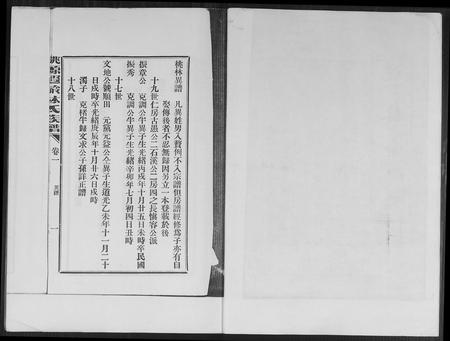 桃林異譜
凡異姓男入贅例不入宗譜但房譜經修爲子亦有自
娶傳後者不忍無歸因另立一本登載於後
十九世仁房古愚公二石溪公二房四之長慎容公派
振章公 克調公牛異子生光緒丙戌年十月廿五日未時卒民國
振秀 克調公牛異子生光緒辛卯年七月初四日丑時
十七世
文地公號順田 元黨元益公仝異子生道光乙未年十一月二十
日戌時卒光緒庚辰年十月廿六日戌時
濁子 克梧牛歸文求公子孫詳正譜
十八世
林氏族譜
卷一
異譜
一